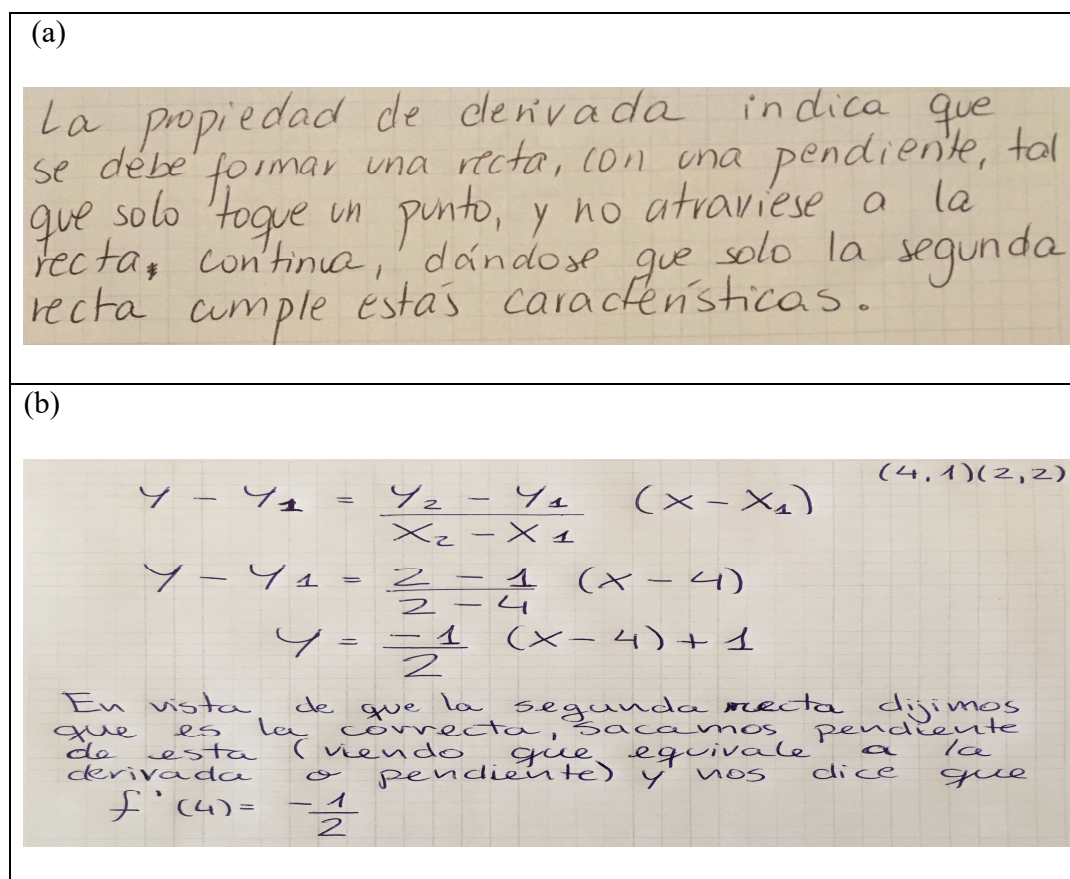 (a)
La propiedad de derivada indica que
se debe formar una recta, con una pendiente, tal
que solo toque un punto, y no atraviese a la
recta, continua, dándose que solo la segunda
recta cumple estás características.
(b)
(4,1)(2,2)
y - y₁ = (y₂ - y₁)/(x₂ - x₁) (x - x₁)
y - y₁ = (2 - 1)/(2 - 4) (x - 4)
y = -1/2 (x - 4) + 1
En vista de que la segunda recta dijimos
que es la correcta, sacamos pendiente
de esta (viendo que equivale a la
derivada o pendiente) y nos dice que
f'(4) = -1/2